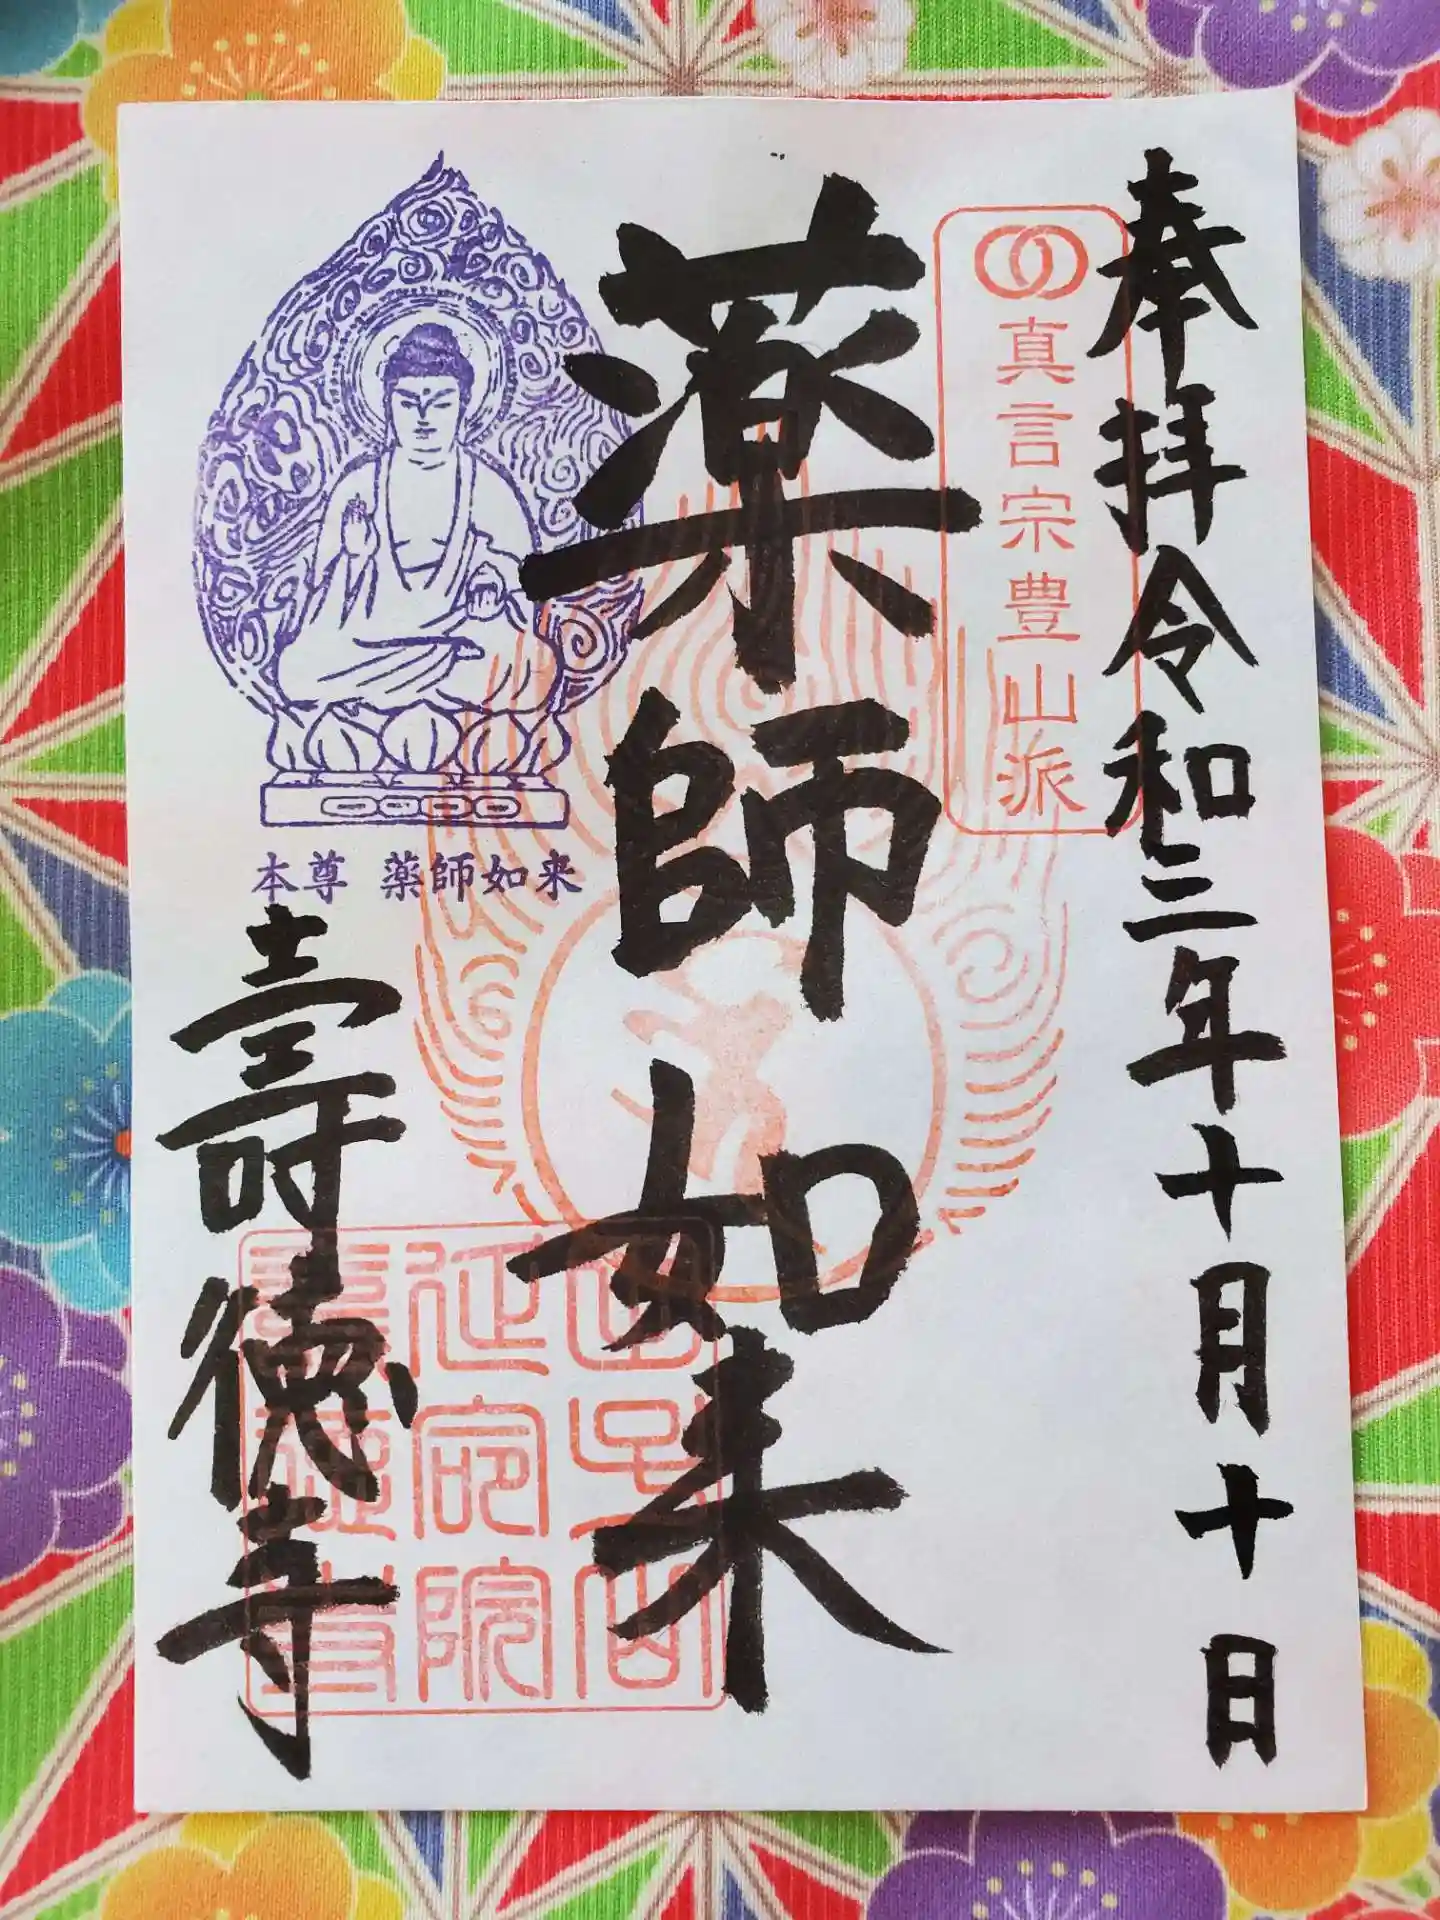 奉拝令和三年十月十日
真言宗豊山派
薬師如来
本尊 薬師如来
壽徳寺
延命院